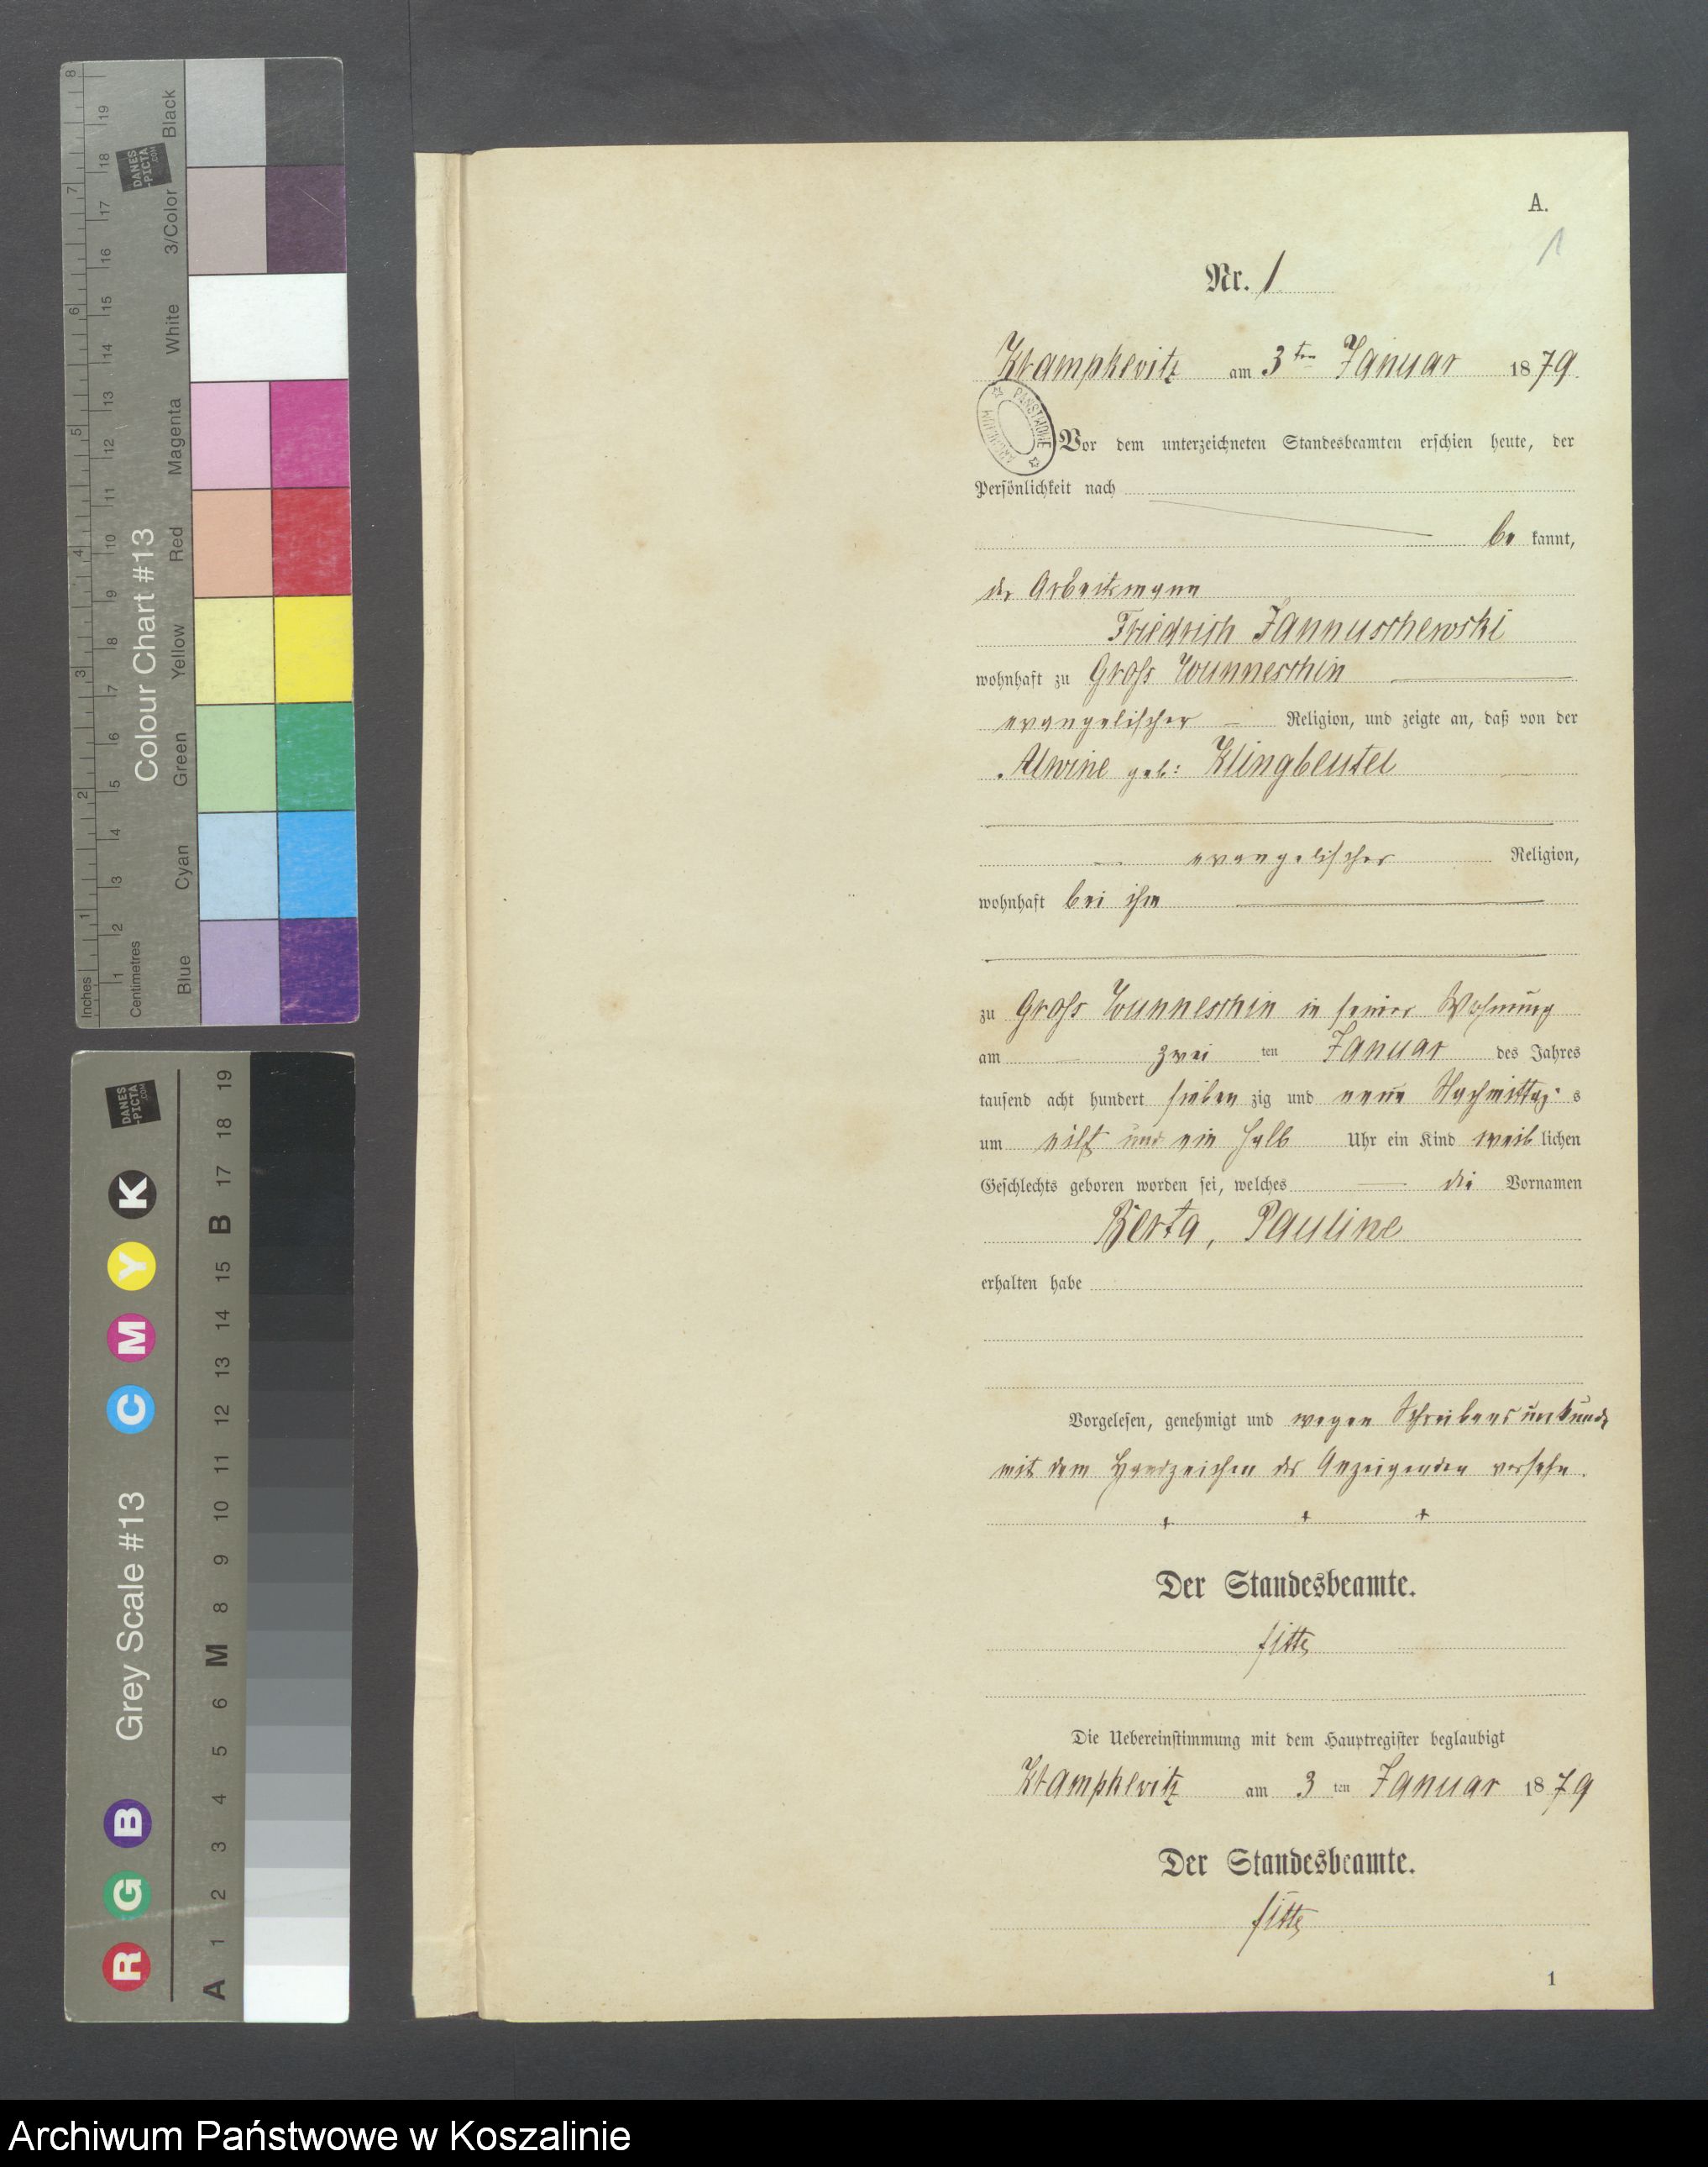 A.
1
Nr. 1
Krampkevitz am 3ten Januar 1879.
ARCHIWUM PAŃSTWOWE
Vor dem unterzeichneten Standesbeamten erschien heute, der
Persönlichkeit nach
be kannt,
der Arbeitsmann
Friedrich Jannuschewski
wohnhaft zu Groß Wunneschin
evangelischer Religion, und zeigte an, daß von der
Alwine geb: Klingbeutel
evangelischer Religion,
wohnhaft bei ihm
zu Groß Wunneschin in seiner Wohnung
am zwei ten Januar des Jahres
tausend acht hundert sieben zig und neun Nachmittag s
um eilf und ein halb Uhr ein Kind weib lichen
Geschlechts geboren worden sei, welches die Vornamen
Berta, Pauline
erhalten habe
Vorgelesen, genehmigt und wegen Schreibensunkunde
mit dem Handzeichen des Anzeigenden versehn.
+ + +
Der Standesbeamte.
Die Uebereinstimmung mit dem Hauptregister beglaubigt
Krampkevitz am 3 ten Januar 1879
Der Standesbeamte.
1
Colour Chart #13
Blue Cyan Green Yellow Red Magenta White 3/Color Black
Inches 1 2 3 4 5 6 7 8
Centimetres 1 2 3 4 5 6 7 8 9 10 11 12 13 14 15 16 17 18 19
DANES-PICTA.COM
Grey Scale #13
R G B C M Y K
A 1 2 3 4 5 6 M 8 9 10 11 12 13 14 15 B 17 18 19
DANES-PICTA.COM
Archiwum Państwowe w Koszalinie